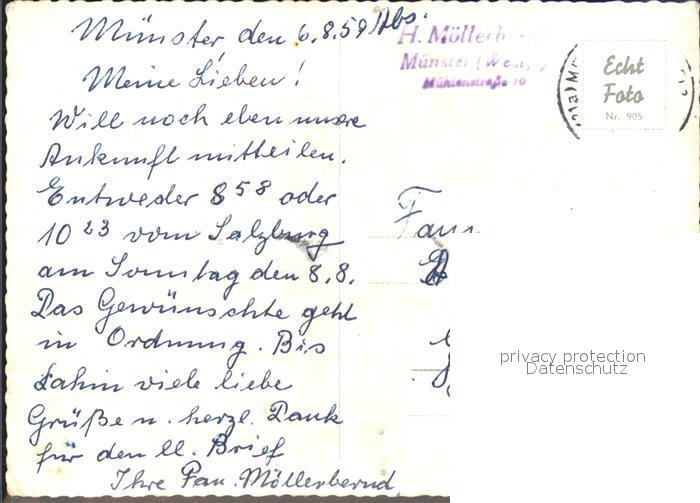 Münster den 6.8.59 Abs.
H. Möller
Münster (Westf.)
Mühlenstraße 10
Echt
Foto
Nr. 905
Meine Lieben!
Will noch eben unsere
Ankunft mitteilen.
Entweder 8 58 oder
10 23 vom Salzburg
am Sonntag den 8.8.
Das Gewünschte geht
in Ordnung. Bis
dahin viele liebe
Grüße u. herzl. Dank
für den ll. Brief
Ihre Fam. Möllerbernd
Fam.
privacy protection
Datenschutz